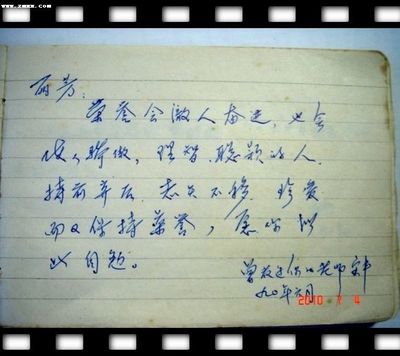 www.zmxm.com
丽芳：
荣誉会激人奋进，也会
使人骄傲，理智、聪颖的人，
持前弃后，志矢不移，珍爱
而又保持荣誉，愿你以
此自勉。
曾教过你的老师
九〇年六月
2010 7 4